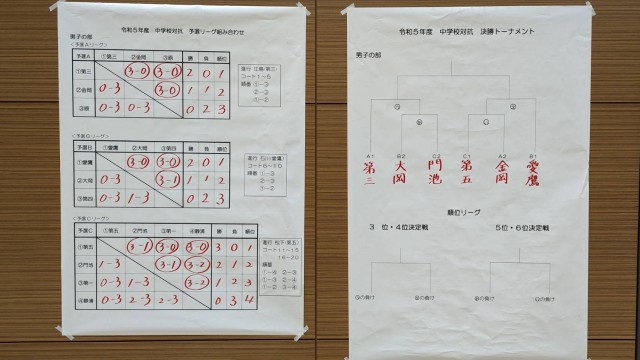 令和5年度 中学校対抗 予選リーグ組み合わせ
男子の部
<予選Aリーグ>
予選A ①第三 ②金岡 ③原 勝 負 順位
①第三 3-0 3-0 2 0 1
②金岡 0-3 3-0 1 1 2
③原 0-3 0-3 0 2 3
コート1~5
順番 ①-③
②-③
①-②
<予選Bリーグ>
予選B ①愛鷹 ②大岡 ③第四 勝 負 順位
①愛鷹 3-0 3-0 2 0 1
②大岡 0-3 3-1 1 1 2
③第四 0-3 1-3 0 2 3
コート6~10
順番 ①-③
②-③
①-②
<予選Cリーグ>
予選C ①第五 ②門池 ③第一 ④静浦 勝 負 順位
①第五 3-1 3-0 3-0 3 0 1
②門池 1-3 3-1 3-2 2 1 2
③第一 0-3 1-3 3-2 1 2 3
④静浦 0-3 2-3 2-3 0 3 4
コート11~15
16~20
順番
令和5年度 中学校対抗 決勝トーナメント
男子の部
A1 B2 C2 C1 A2 B1
第三 大岡 門池 第五 金岡 愛鷹
順位リーグ
3位・4位決定戦 5位・6位決定戦